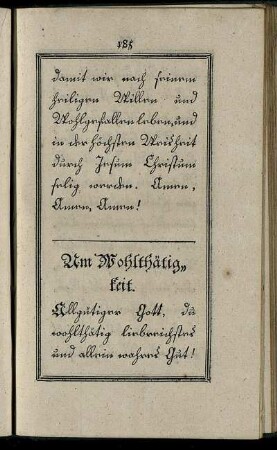 185
damit wir nach seinem
heiligen Willen und
Wohlgefallen leben, und
in der höchsten Weisheit
durch Jesum Christum
selig werden. Amen,
Amen, Amen!
Um Wohlthätig„
keit.
Allgütiger Gott, du
wohlthätig liebreichstes
und allein wahres Gut!